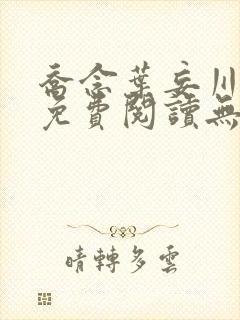 喬念葉妄川
免費閱讀無
晴轉多雲